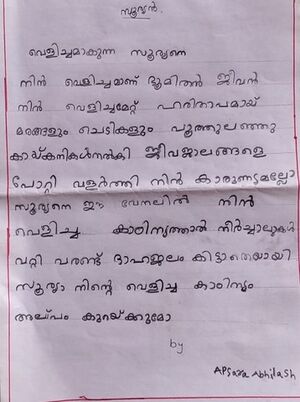 സൂര്യൻ.
വെളിച്ചമാകുന്ന സൂര്യനെ
നിൻ വെളിച്ചമാണ് ഭൂമിതൻ ജീവൻ
നിൻ വെളിച്ചമേറ്റ് ഹരിതാപമായ്
മരങ്ങളും ചെടികളും പൂത്തുലഞ്ഞു
കായ്കനികൾനൽകി ജീവജാലങ്ങളെ
പോറ്റി വളർത്തി നിൻ കാരുണ്യമല്ലോ
സൂര്യനെ ഈ വേനലിൽ നിൻ
വെളിച്ച കാഠിന്യത്താൽ നീർച്ചാലുകൾ
വറ്റി വരണ്ട് ദാഹജലം കിട്ടാതെയായി
സൂര്യാ നിന്റെ വെളിച്ച കാഠിന്യം
അല്പം കുറയ്ക്കുമോ
by
Apsara Abhilash